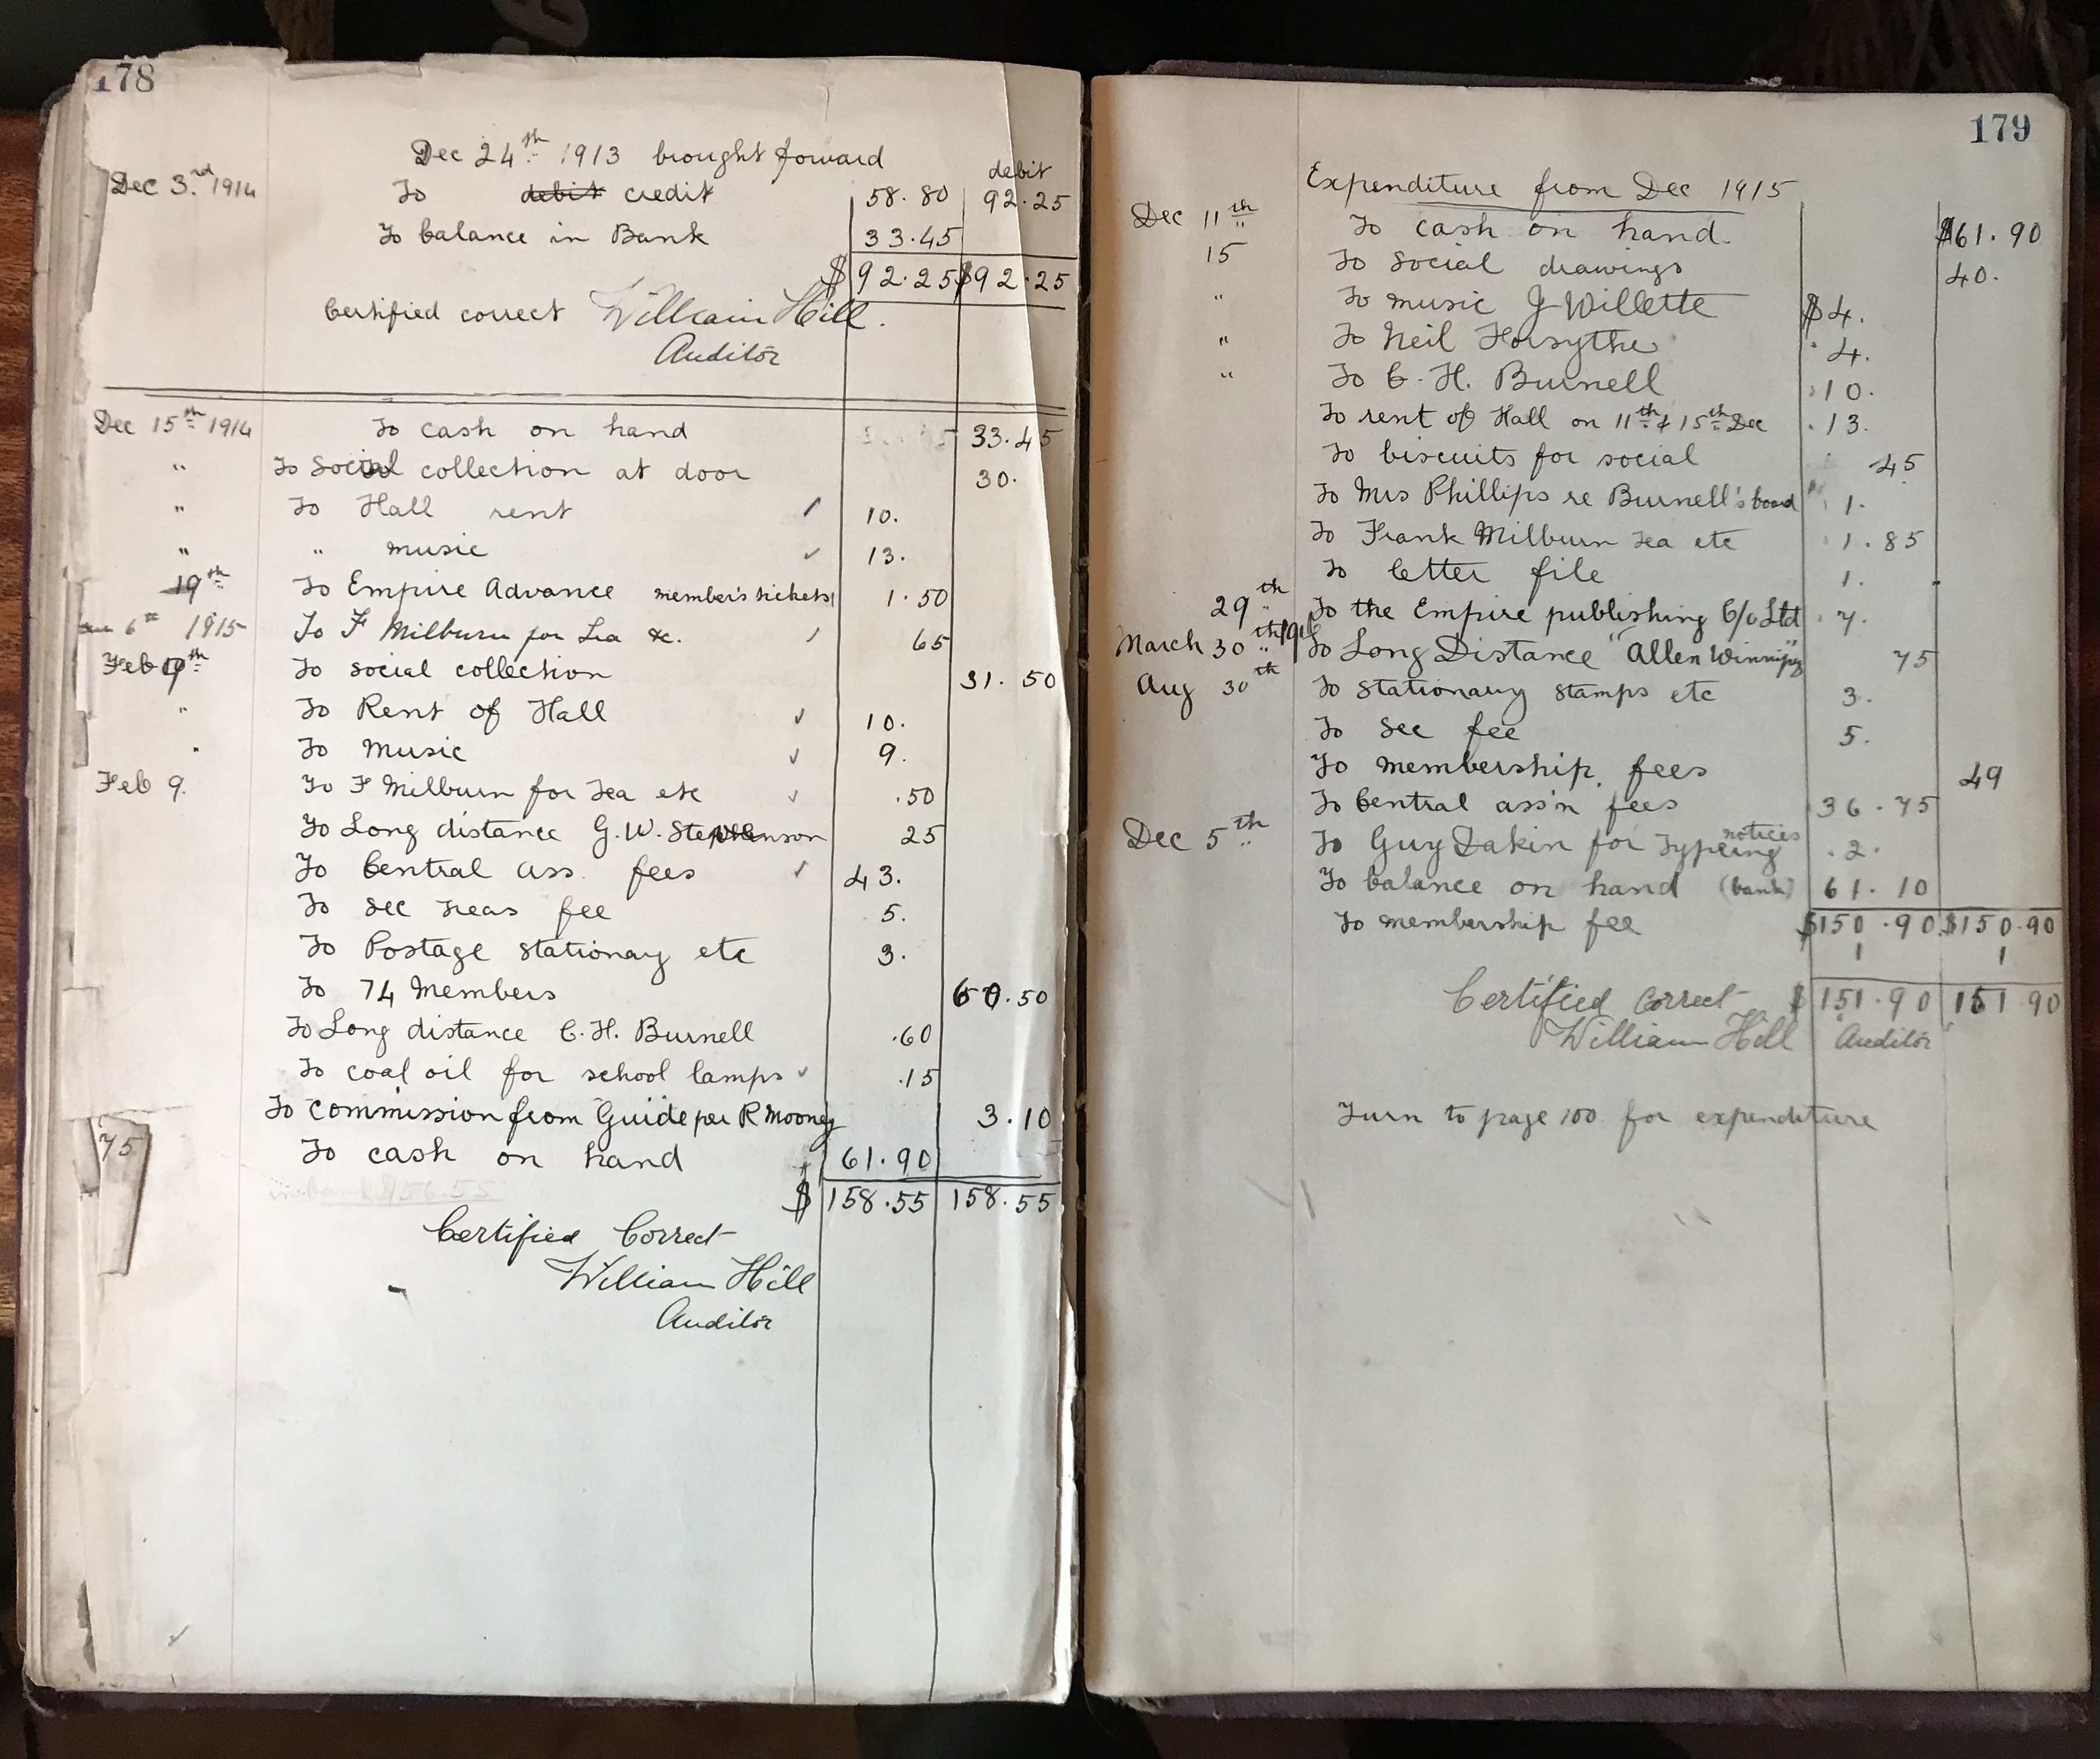 178
Dec 24th 1913 brought forward
debit
Dec 3rd 1914 To debit credit 58.80 92.25
To balance in Bank 33.45
$92.25 $92.25
Certified correct William Hill.
Auditor
Dec 15th 1914 To cash on hand 33.45
" To Social collection at door 30.
" To Hall rent 10.
" " music 13.
19th To Empire Advance member's tickets 1.50
6th 1915 To F Milburn for Tea &c. 65
Feb 9th To social collection 31.50
" To Rent of Hall 10.
" To Music 9.
Feb 9. To F Milburn for Tea etc .50
To Long distance G. W. Stephenson 25
To Central Ass. fees 43.
To Sec Treas fee 5.
To Postage stationary etc 3.
To 74 Members 60.50
To Long distance C. H. Burnell .60
To coal oil for school lamps .15
To commission from Guide per R Mooney 3.10
75
To cash on hand 61.90
in bank $56.55
$158.55 158.55
Certified Correct
William Hill
Auditor
179
Expenditure from Dec 1915
Dec 11th To cash on hand. $61.90
15 To Social drawings 40.
" To music J Willette $4.
" To Neil Forsythe 4.
" To C. H. Burnell 10.
To rent of Hall on 11th & 15th Dec 13.
To biscuits for social 45
To Mrs Phillips re Burnell's board 1.
To Frank Milburn Tea etc 1.85
To letter file 1.
29th To the Empire publishing C/o Ltd 7.
March 30th 1916 To Long Distance "Allen Winnipeg" 75
Aug 30th To stationary stamps etc 3.
To Sec fee 5.
To membership fees 49
To Central ass'n fees 36.75
Dec 5th To Guy Dakin for Typeing notices 2.
To balance on hand (bank) 61.10
To membership fee $150.90 $150.90
1 1
Certified Correct $151.90 151.90
William Hill Auditor
Turn to page 100 for expenditure